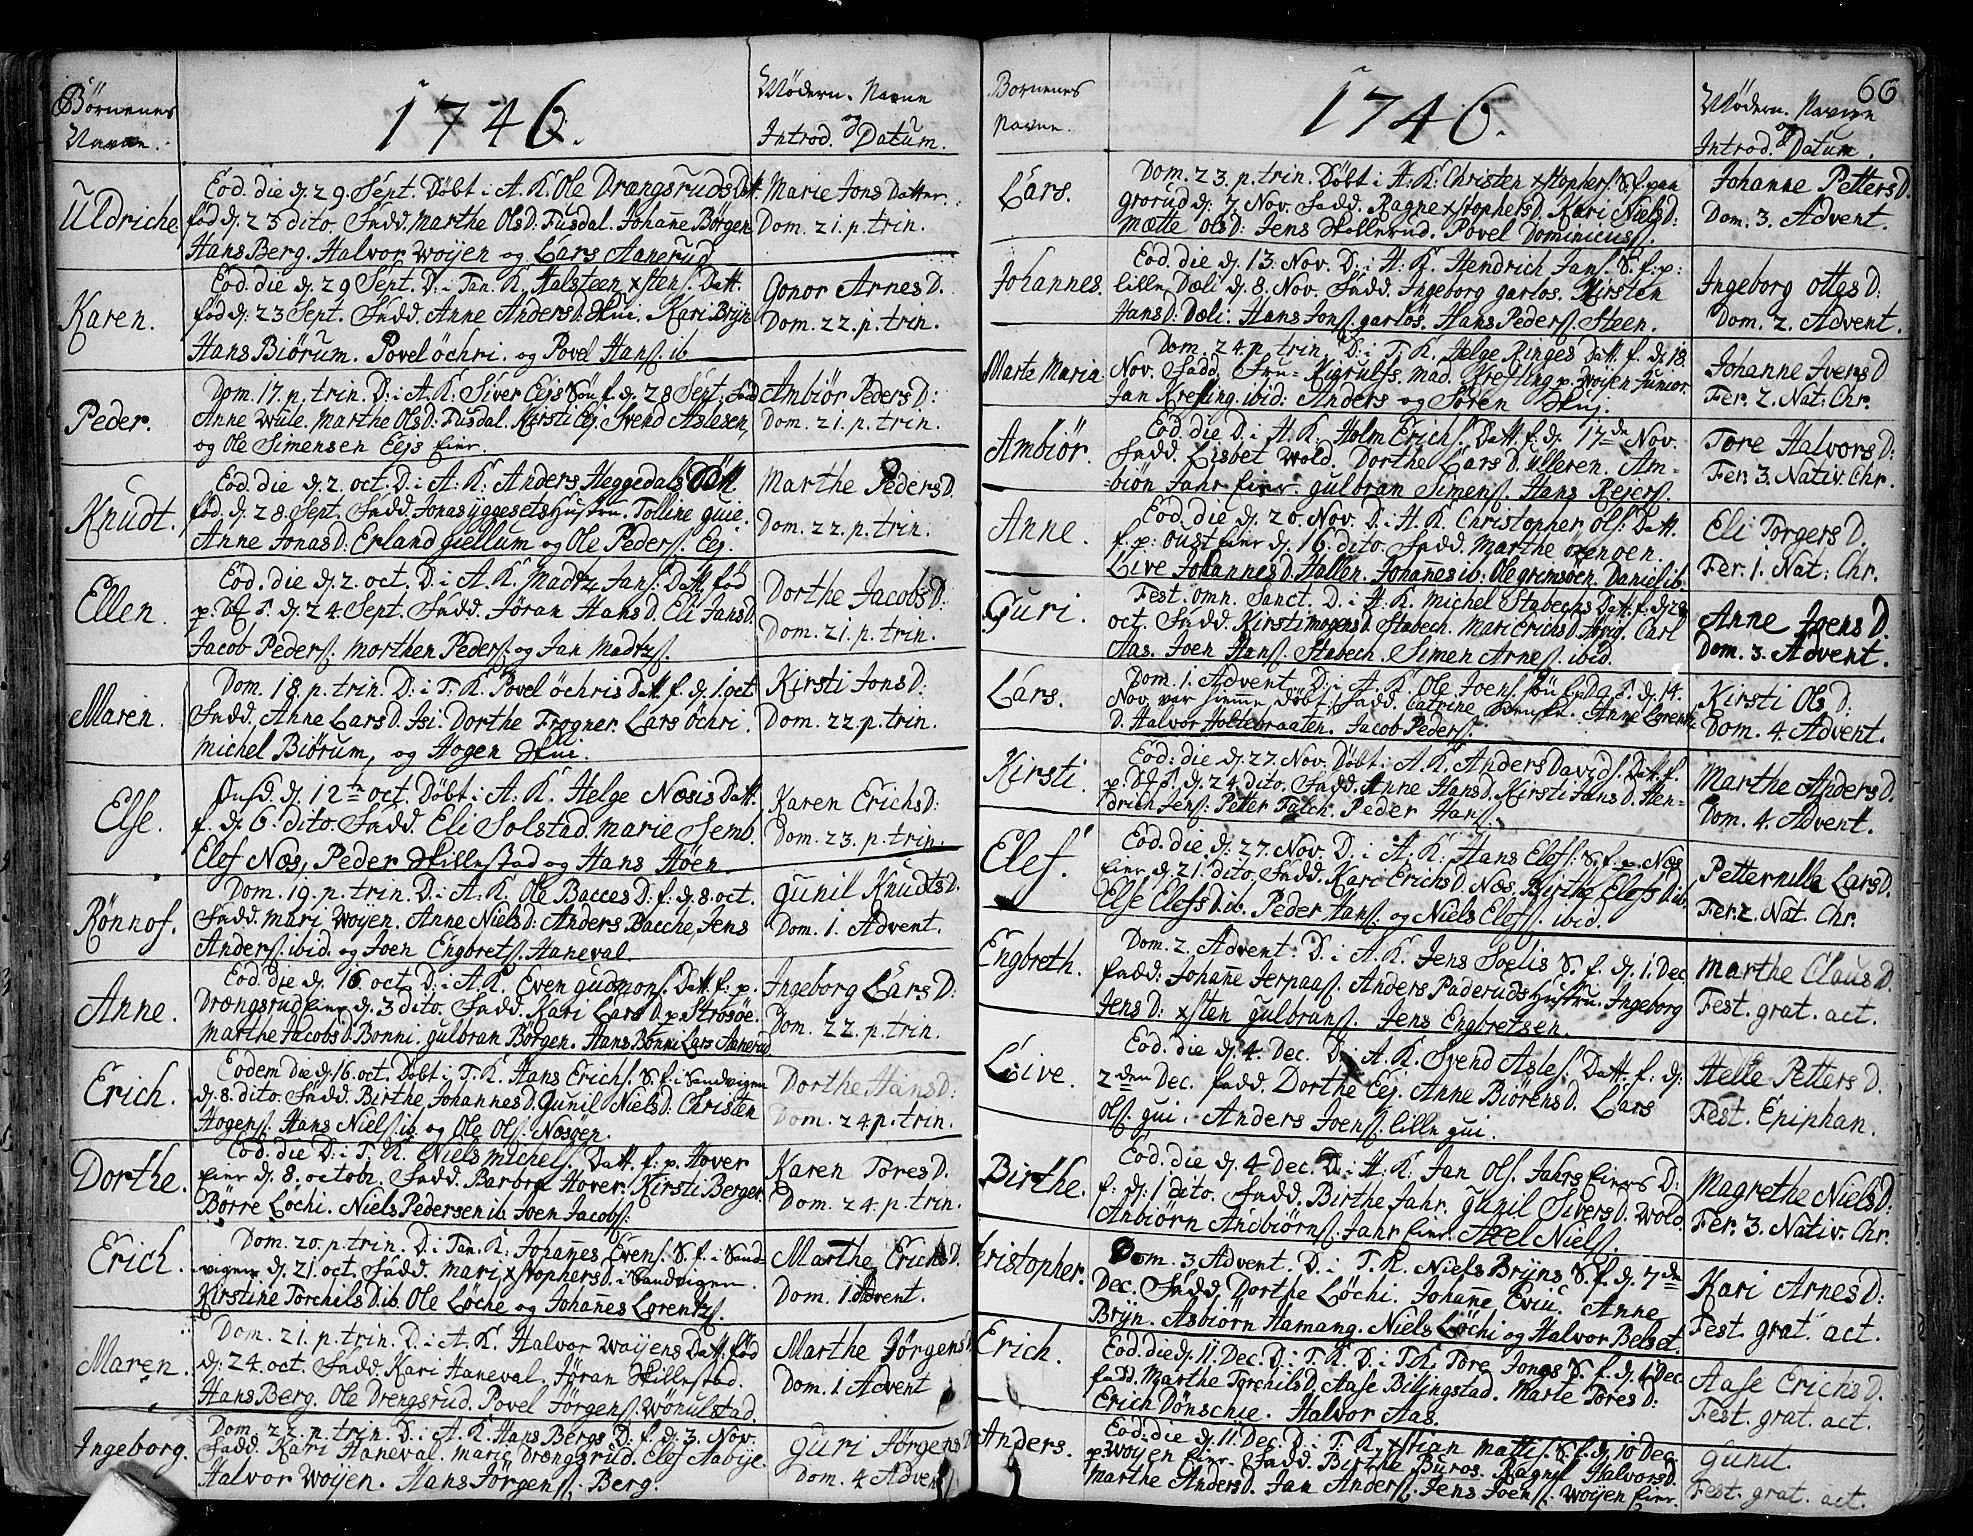 Börnenes
Navne.
1746.
Mödern. Navne
og
Introd. Datum.
Uldriche
Eod. die d. 29 Sept. Döbt i A. K. Ole Drængsruds Datt.
föd d. 23 dito. Fadd. Marthe Ols D: Fusdal. Johañe Borgen
Hans Berg. Halvor Woijen og Lars Aanerud
Marie Jons Datter.
Dom. 21. p. trin.
Karen.
Eod. die d. 29 Sept. D. i Tan. K. Halsteen xstens. Datt.
föd d. 23 Sept. Fadd. Anne Anders D. Skui. Kari Brÿn
Hans Biörum. Povel öchri. og Povel Hans. ib
Gonor Arnes D.
Dom. 22. p. trin.
Peder.
Dom. 17. p. trin. D: i A. K: Siver Eejs Sön f. d. 28 Sept. Fad
Anne Wüle. Marthe Ols D: Fusdal. Kirsti Eej. Svend Aslesen,
og Ole Simensen Eejs Eier.
Ambiör Peders D:
Dom. 21. p. trin.
Knudt.
Eod. die d. 2. oct. D. i A. K. Anders Heggedals
föd. d. 28 Sept. Fadd. Jonas ÿggesets Hustru. Tolline guie.
Anne Jonas D: Erland giellum og Ole Peders. Eej.
Marthe Peders D.
Dom. 22. p. trin.
Ellen.
Eod. die d. 2. oct. D. i A. K. Madtz Jans. Datt. föd
d. 24 Sept. Fadd. Jöran Hans D. Eli Jans D.
Jacob Peders. Morthen Peders. og Jan Madtzs.
Dorthe Jacobs D:
Dom. 21. p. trin.
Maren.
Dom. 18. p. trin. D: i T. K. Povel öchris Datt. f. d. 1. oct
Fadd. Anne Lars D. Isi. Dorthe Frogner. Lars öchri.
Michel Biörum, og Hogen Skui.
Kirsti Jons D:
Dom. 22. p. trin.
Else.
Onsd. d. 12te oct. Döbt i A: K. Helge Næsis Datt.
f. d. 6. dito. Fadd. Eli Solstad. Marie Semb.
Elef Næs, Peder Skillestad og Hans Höen.
Karen Erichs D:
Dom. 23. p. trin.
Rönnof.
Dom. 19. p. trin. D. i A. K. Ole Bacces D: f. d. 8. oct.
Fadd. Mari Woyen. Anne Niels D: Anders Bacche, Jens
Anders. ibid. og Joen Engbrets. Haneval.
Gunil Knudts D.
Dom. 1. Advent.
Anne.
Eod. die d. 16 oct. D. i A. K. Even Gudmons. Datt. f. p.
Drængsrud Eier d. 3 dito. Fadd. Kari Lars D. p. Strösöe.
Marthe Jacobs D. Bonni. Gulbran Börgen. Hans Bonni Lars Aanerud
Ingeborg Lars D:
Dom. 22. p. trin.
Erich.
Eodem die d. 16. oct. Döbt i T. K. Hans Erichs. S. f. i Sandvigen
d. 8. dito. Fadd. Birthe Johannes D. Gunil Niels D. Christen
Hogens. Hans Niels. ib. og Ole Ols. Næsöen.
Dorthe Hans D:
Dom. 24 p. trin.
Dorthe.
Eod. die D: i T. K. Niels Michels. Datt. f. p. Hover
Eier d. 8. octobr. Fadd. Barbra Hover. Kirsti Berger
Börre Löchi. Niels Pedersen ib. Joen Jacobs:
Karen Tores D.
Dom. 24. p. trin.
Erich.
Dom. 20. p. trin. D. i Tan. K. Johañes Evens. S. f. i Sand-
vigen d. 21. oct. Fadd. Mari xstophers D. i Sandvigen.
Kirstine Torchels D. ib. Ole Löche og Johañes Lorentzs.
Marthe Erichs D.
Dom. 1 Advent.
Maren.
Dom. 21. p. trin. D. i A. K. Halvor Woijens Datt. föd
d. 24. oct. Fadd. Kari Haneval. Jöran Skillestad.
Hans Berg. Ole Drengsrud. Povel Jörgens. Wönulstad.
Marthe Jörgens
Dom. 1. Advent
Ingeborg.
Dom. 22. p. trin. D. i A. K. Hans Bergs D: f. d. 3. Nov.
Fadd. Kari Haneval. Marie Drengsrud. Elef Aabije.
Halvor Woijen. Hans Jörgens. Berg.
Guri Jörgens
Dom. 4 Advent
66
Bornenes
Navne.
1746.
Mödern. Navne
og
Introd. Datum.
Lars.
Dom. 23. p. trin. Döbt i A. K: Christen xstophers. S. f. paa
grorud d. 7 Nov. Fadd. Ragne xstophers D. Kari Niels D:
Mætte Ols D: Jens Skollerud. Povel Dominicuss.
Johanne Petters D.
Dom. 3. Advent.
Johannes.
Eod. die d. 13. Nov. D. i A. K. Hendrich Jans. S. f. p:
lille Dæli d. 8. Nov. Fadd. Ingeborg garlos. Kirsten
Hans D: Dæli. Hans Jons. garlös. Hans Peders. Steen.
Ingeborg Ottes D:
Dom. 2. Advent.
Marte Maria
Dom. 24. p. trin. D: i T. K. Helge Ringes Datt. f. d. 18
Nov. Fadd. Fru- Kierulfs. Mad. Krefting p. Woijen Junior
Jan Krefting. ibid: Anders og Sören Skuj.
Johanne Ivers D
Fer. 2. Nat: Chr.
Ambiör.
Eod. die D. i A. K. Holm Erichs. Datt. f. d. 17de Nov.
Fadd. Lisbet Wold. Dorthe Lars D. Ulleren. Am-
-biön Jahr Eier. Gulbran Simens. Hans Rejers.
Tore Halvors D:
Fer. 3. Nativ. Chr.
Anne.
Eod. die d. 20. Nov. D. i A. K. Christopher Ols: Datt.
f. p: oust eier d. 16. dito. Fadd. Marthe öxenoen.
Live Johannes D. Hallen. Johañes ib. Ole grimsöen. Daniel ib.
Eli Torgers D.
Fer. 1. Nat: Chr.
Guri.
Fest. omn. Sanct. D. i A. K. Michel Stabechs Datt. f. d. 28
oct. Fadd. Kirsti Mogens D. Stabech. Mari Erichs D. Carl
Aas. Joen Hans. Stabech. Simen Arnes. ibid.
Anne Joens D.
Dom. 3. Advent.
Lars.
Dom. 1. Advent. D. i A. K. Ole Joens. Sön d. 14.
Nov. var hjemme Döbt. Fadd. Catrine Svensk. Anne Lorentz
D. Halvor Holtebraaten. Jacob Peders.
Kirsti Ols D:
Dom. 4. Advent.
Kirsti
Eod. die d. 27. Nov. Döbt. i A. K. Anders Davids. Datt. f.
d. 24. dito. Fadd. Anne Hans D. Kirsti Jans D. Hen-
drich Jens: Petter Falch. Peder Hans.
Marthe Anders D.
Dom. 4. Advent.
Elef.
Eod. die d. 27. Nov. D. i A. K: Hans Elefs: S. f. p. Næs
Eier d. 21. dito. Fadd. Kari Erichs D. Næs. Birthe Elefs D. ib.
Else Elefs D. ib. Peder Hans. og Niels Elefs. ibid.
Petternilla Lars D.
Fer. 2. Nat. Chr.
Engbreth.
Dom. 2. Advent: D. i A. K. Jens Solis S. f. d. 1. Dec
Fadd: Johañe Jernaas. Anders Paderuds Hustru. Ingeborg
Jens D: xsten Gulbrans. Jens Engbretsen.
Marthe Claus D.
Fest. grat. act.
Live.
Eod. die d. 4. Dec. D. i A. K. Svend Asles. Datt. f. d:
2den Dec. Fadd. Dorthe Eej. Anne Biörens D. Lars
Ols. gui. Anders Joens. lille gui.
Helle Petters D.
Fest. Epiphan.
Birthe.
Eod. die d. 4 Dec. D. i A. K: Jan Ols. Jahrs Eiers D:
f: d. 1 dito. Fadd. Birthe Jahr. Gunil Sivers D. Wold
Anbiörn Andbiörns. Jahr Eier. Axel Niels.
Magrethe Niels D:
Fer. 3. Nativ. Chr.
Christopher.
Dom. 3 Advent. D. i T. K. Niels Brÿns S. f. d. 7de
Dec. Fadd. Dorthe Löchi. Johañe Eviu. Anne
Brÿn. Asbiörn Hamang. Niels Löchi og Halvor Belset.
Kari Arnes D:
Fest. grat. act.
Erich.
Eod. die d. 11. Dec. D. i T. K. D. i T. K. Tore Jonss S. f. d. 6 Dec
Fadd. Marthe Torchils D. Aase Bilingstad. Marie Tores D:
Erich Dönschie. Halvor Aas.
Aase Erichs D.
Fest. grat. act.
Anders.
Eod. die d. 11. Dec. D. i T. K. xstian Mattis. S. f. d. 10 Dec.
p. Woijen Eier. Fadd. Birthe Buros. Ragnil Halvors D.
Marthe Anders D. Jan Anders. Jens Joens. Woijen Eier.
Gunil.
Fest. grat. act.